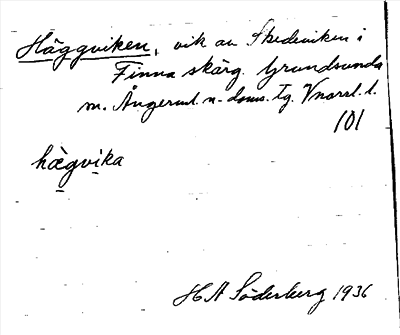 Häggviken, vik av Skedeviken i
Finna skärg. Grundsunda
m. Ångerml. n. doms. tg. Vnorrl. l.
101
hägvika
H A Söderberg 1936